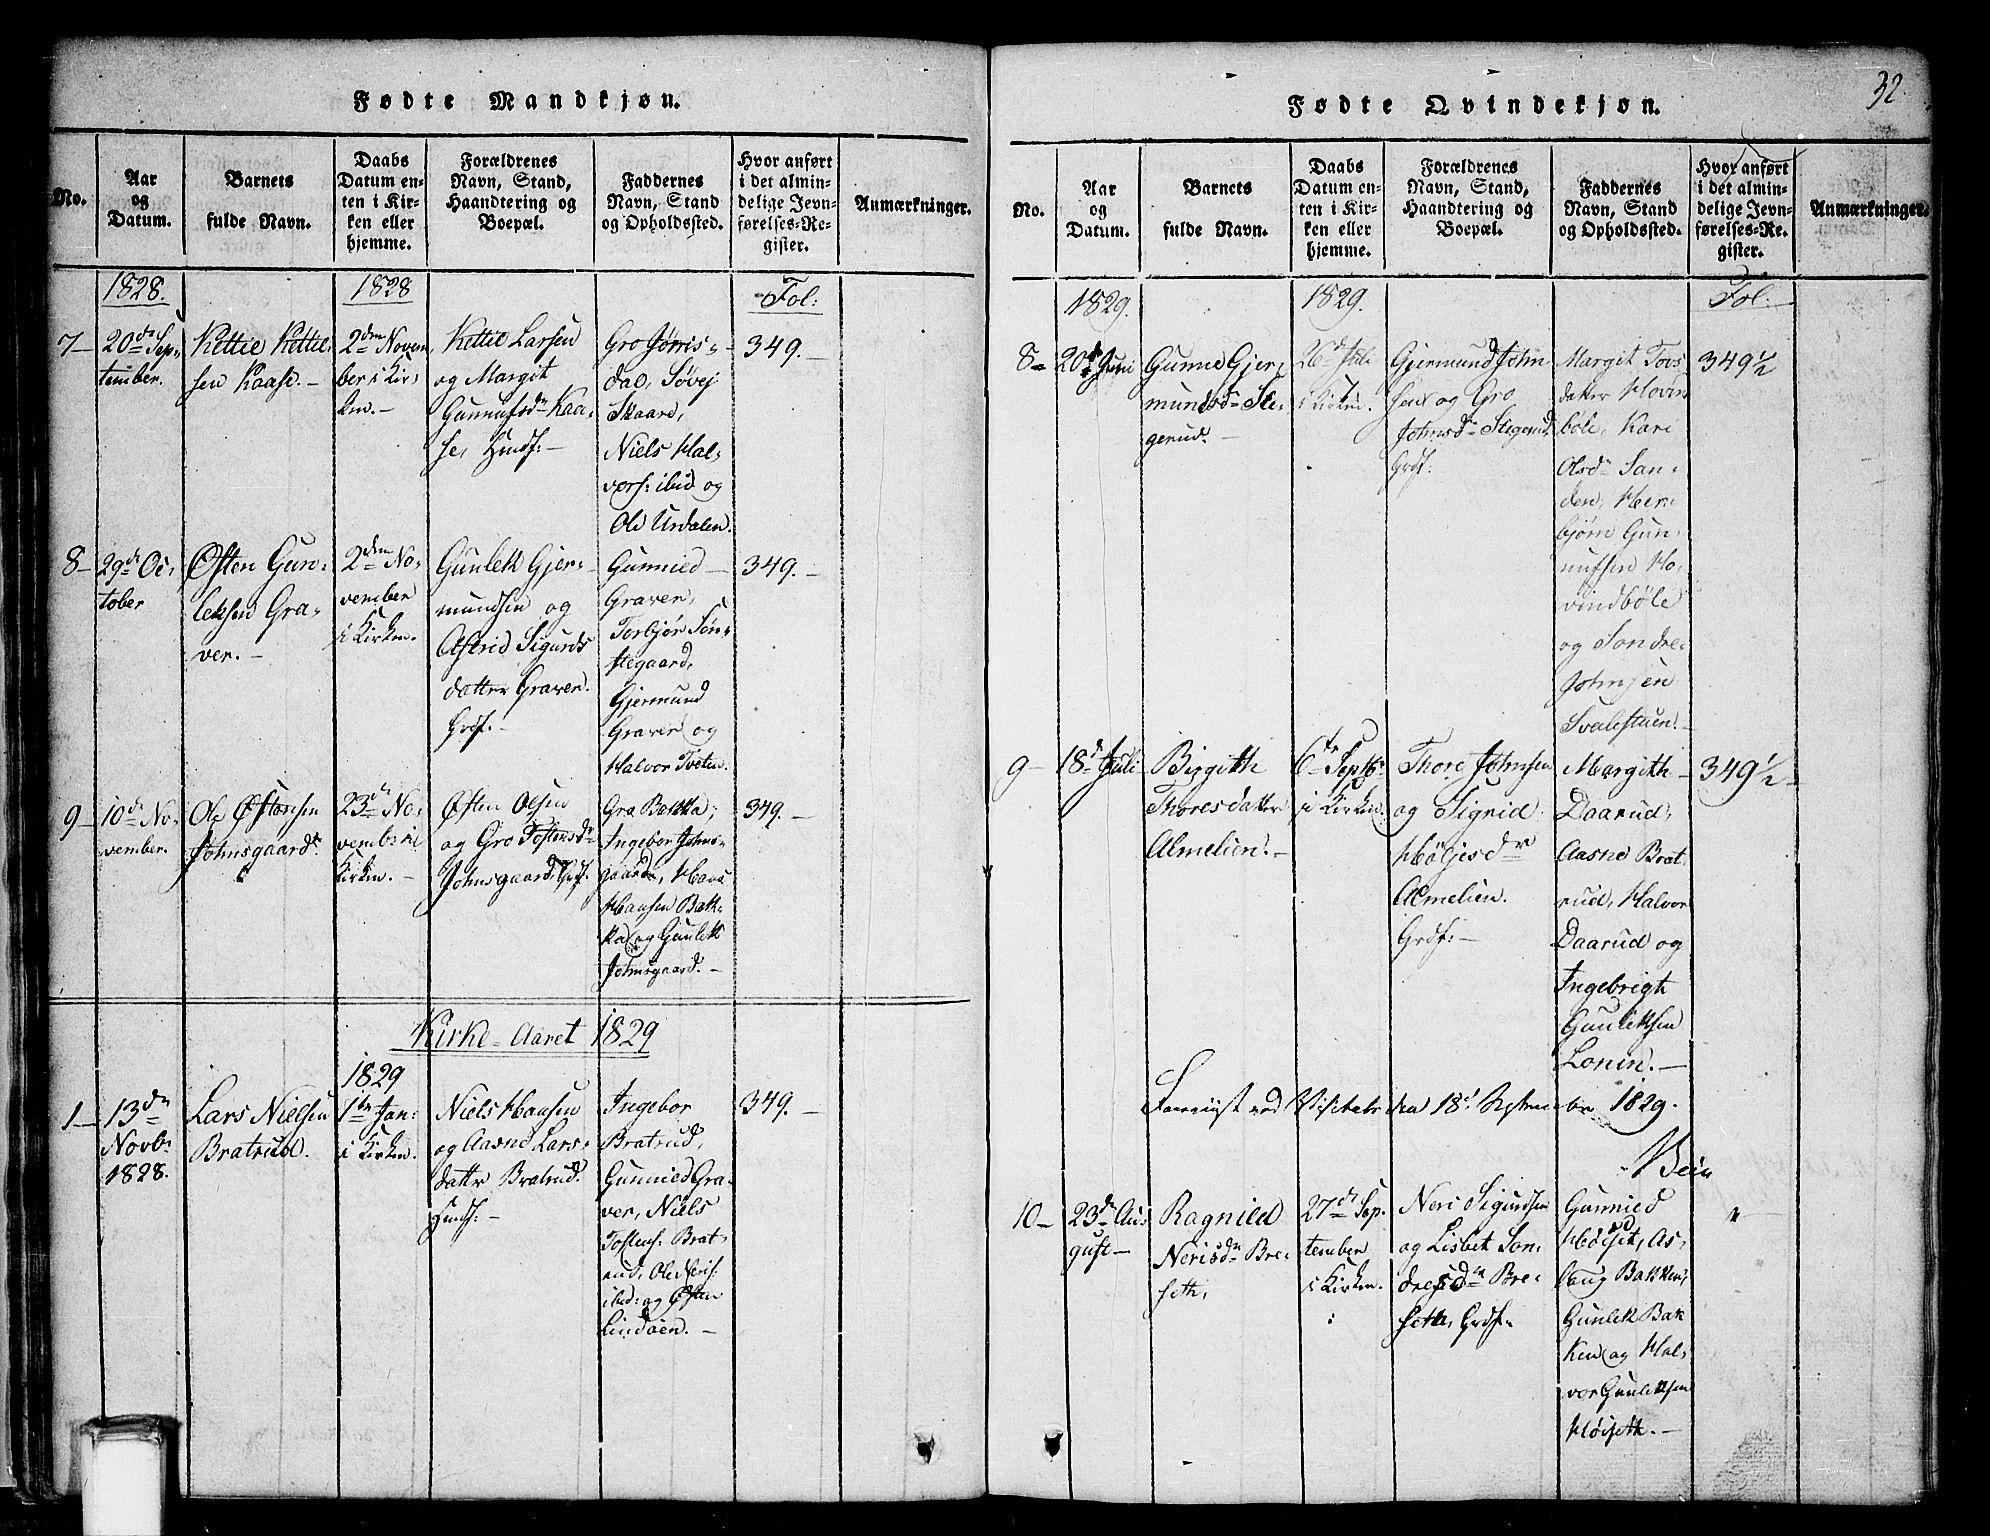 Fødte Mandkjøn.
No.
Aar
og
Datum.
Barnets
fulde Navn.
Daabs
Datum en-
ten i Kir-
ken eller
hjemme.
Forældrenes
Navn, Stand,
Haandtering og
Boepæl.
Faddernes
Navn, Stand
og Opholdssted.
Hvor anført
i det almin-
delige Jevn-
førelses-Re-
gister.
Anmærkninger.
1828.
1828
Fol:
7
20de Sep-
tember.
Kettil Kettil-
sen Kaase.
2den Novem-
ber i Kir-
ken.
Kettil Larsen
og Margit
Gunnufsdr Kaa-
se, Huusf:
Gro Jørris-
dal, Søvej
Skaare,
Niels Hal-
vors: ibid og
Ole Urdalen.
349.
8
29de Oc-
tober
Østen Gun-
leksen Gra-
ver.
2den No-
vember
i Kirken.
Gunlek Gjer-
mundsen og
Astrid Sigurds
datter Graver.
Grdf:
Gunnied
Graver,
Torbjør Søn-
stegaard,
Gjermund
Graver og
Halvor Tveten.
349.
9
10de No-
vember.
Ole Østensen
Johnsgaard.
23de No-
vember i
Kirken.
Østen Olsen
og Gro Tostensdr
Johnsgaard, Grdf.
Gro Bakka,
Ingebor Johns-
gaard, Hans
Hansen Bak-
ka og Gunlek
Johnsgaard.
349.
Kirke-Aaret 1829
1
13de
Novbr
1828.
Lars Nielsen
Bratrud.
1829
1te Jan:
i Kirken.
Niels Hansen
og Aasne Lars-
datter Bratrud.
Huusf:
Ingebor
Bratrud,
Gunnied Gra-
ver, Niels
Tostens: Brat-
rud, Ole Neris:
ibid: og Østen
Lindoen.
349.
32
Fødte Qvindekjøn.
No.
Aar
og
Datum.
Barnets
fulde Navn.
Daabs
Datum en-
ten i Kir-
ken eller
hjemme.
Forældrenes
Navn, Stand,
Haandtering og
Boepæl.
Faddernes
Navn, Stand
og Opholdssted.
Hvor anført
i det almin-
delige Jevn-
førelses-Re-
gister.
Anmærkninger.
1829.
1829.
Fol.
8
20de Juni
Gunne Gjer-
mundsdr Ste-
gerud.
26de Juli
i Kirken.
Gjermund John
sen og Gro
Johnsdr Stegerud
Grdf:
Margit Tovs
datter Hovin
bøle, Kari
Olsdr San-
den, Herr-
bjørn Gun-
nufsen Ho-
vindbøle
og Sondre
Johnsen
Svalestuen.
349½
9
18de Juli
Birgith
Thoresdatter
Almelien.
6te Septbr
i Kirken.
Thore Johnsen
og Sigrid
Høljesdr
Almelien.
Grdf:
Margith
Daarud,
Aasne Brat
rud, Halvor
Daarud og
Ingebrigth
Gunleksen
Lonin.
349½
Foreviist ved Visitats den 18de Septem
ber 1829.
10
23de Au-
gust
Ragnild
Nerisdr Bre-
seth,
27de Sep-
tember
i Kirken.
Neri Sigurdsen
og Lisbet Son-
dresdr Bre-
seth, Grdf:
Gunnied
Høiset, As-
laug Bakken,
Gunlek Bak
ken og Hal-
vor Gunleksen
Høiseth.
"